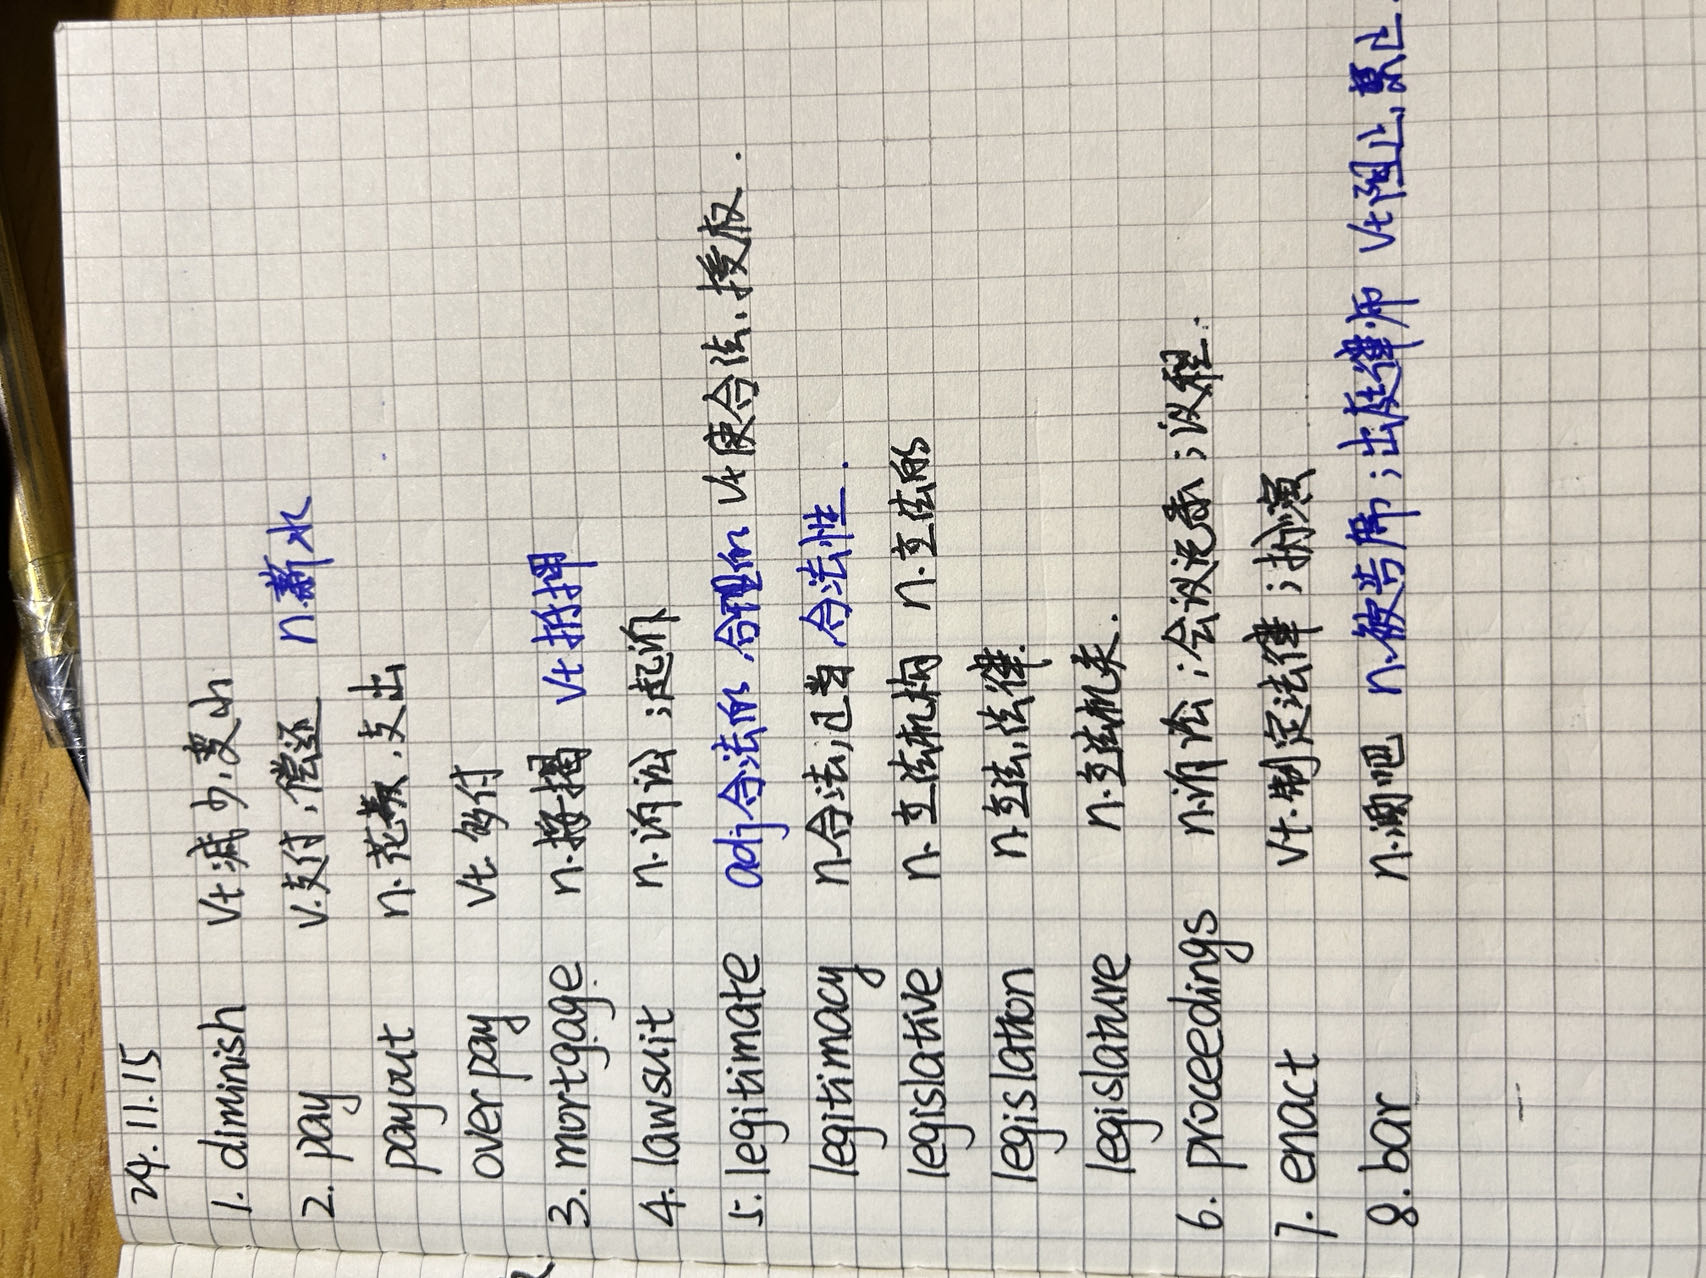 24.11.15
1. diminish vt减少,变小
2. pay v.支付,偿还 n.薪水
payout n.花款,支出
overpay vt多付
3. mortgage n.按揭 vt抵押
4. lawsuit n.诉讼;起诉
5. legitimate adj合法的,合理的 vt使合法,授权.
legitimacy n.合法,正当,合法性.
legislative n.立法机构 n.立法的
legislation n.立法,法律.
legislature n.立法机关.
6. proceedings n.诉讼;会议记录;议程.
7. enact vt.制定法律;扮演
8. bar n.酒吧 n.被告席;出庭律师 vt阻止,禁止.